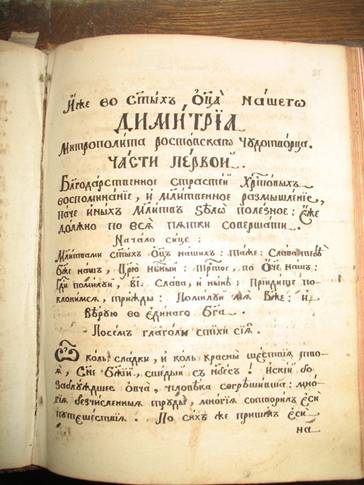 Иже во ст҃ыхъ ѻц҃а нашегѡ
ДИМИ́ТРЇА
Митрополита ростовскагѡ Чꙋдотворца.
ЧАСТИ ПЕРВОЙ.
Благодарственное страстей Хрт҃овыхъ
воспоминанїе, и мл҃итвенное размышленїе,
паче иныхъ мл҃итвъ ѕѣлѡ полезное: еже
должно по всѧ пѧтки совершати.
Начало сице:
Мл҃итвами ст҃ыхъ ѻц҃ъ нашихъ: таже: Слава тебѣ
бж҃е нашъ, Цр҃ю нб҃ный: Трт҃ое, по Ѻч҃е нашъ:
Гд҃и помилꙋй, в҃і. Слава, и нынѣ: Прїидите по
клонимсѧ, трижды: Помилꙋй мѧ Бж҃е: и
Вѣрꙋю во единаго Бг҃а.
Посемъ глаголи стїхи сїѧ.
Ѽ коль сладки, и коль красны шествїѧ тво
ѧ, Сн҃е Бж҃їй, сшедый съ нб҃есъ! искїй бо
заблꙋждшее овча, человѣка согрѣшивша: мнѡ
гїѧ безчисленныѧ трꙋды, многїѧ сотворилъ еси
пꙋтешествїѧ. По сихъ же пришелъ еси
на